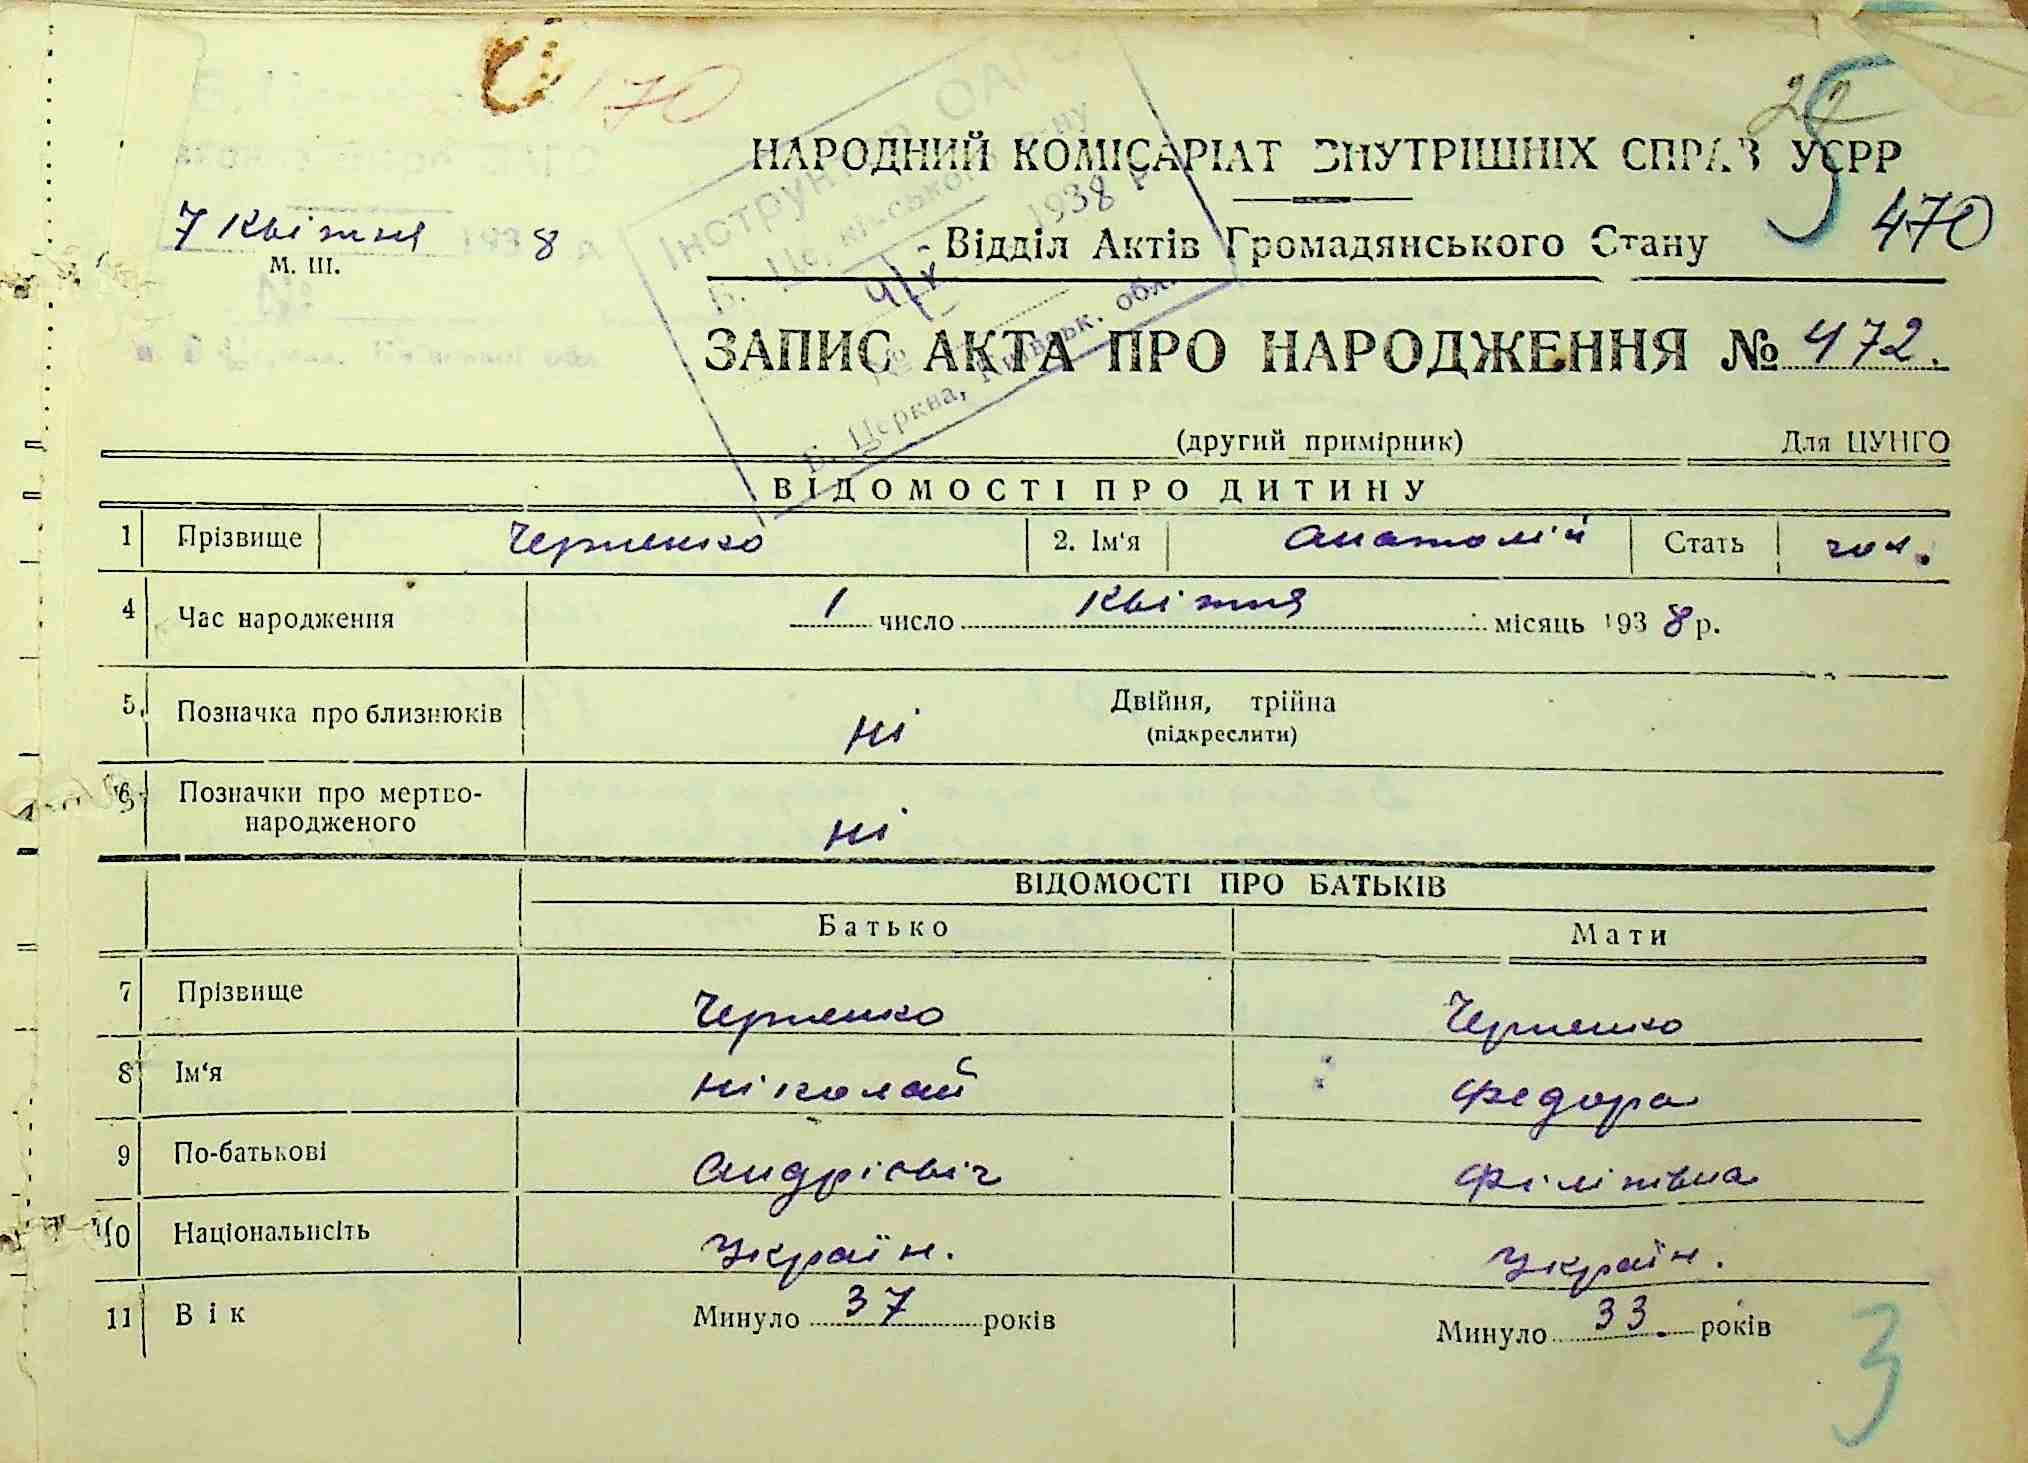 470
22
НАРОДНИЙ КОМІСАРІАТ ВНУТРІШНІХ СПРАВ УСРР
7 Квітня 1938
М. Ш.
Відділ Актів Громадянського Стану
470
Інструктор ОАГС
Б. Церківського р-ну
4/X 1938 р
№
Б. Церква, Київськ. обл.
ЗАПИС АКТА ПРО НАРОДЖЕННЯ № 472.
(другий примірник) Для ЦУНГО
ВІДОМОСТІ ПРО ДИТИНУ
1 Прізвище Черненко 2. Ім'я Анатолій Стать чол.
4 Час народження 1 число Квітня місяць 1938 р.
5. Позначка про близнюків ні Двійня, трійна
(підкреслити)
6 Позначки про мертво-
народженого ні
ВІДОМОСТІ ПРО БАТЬКІВ
Батько Мати
7 Прізвище Черненко Черненко
8 Ім'я Ніколай Федора
9 По-батькові Андрієвіч Філіпівна
10 Національність Україн. Україн.
11 Вік Минуло 37 років Минуло 33. років
3